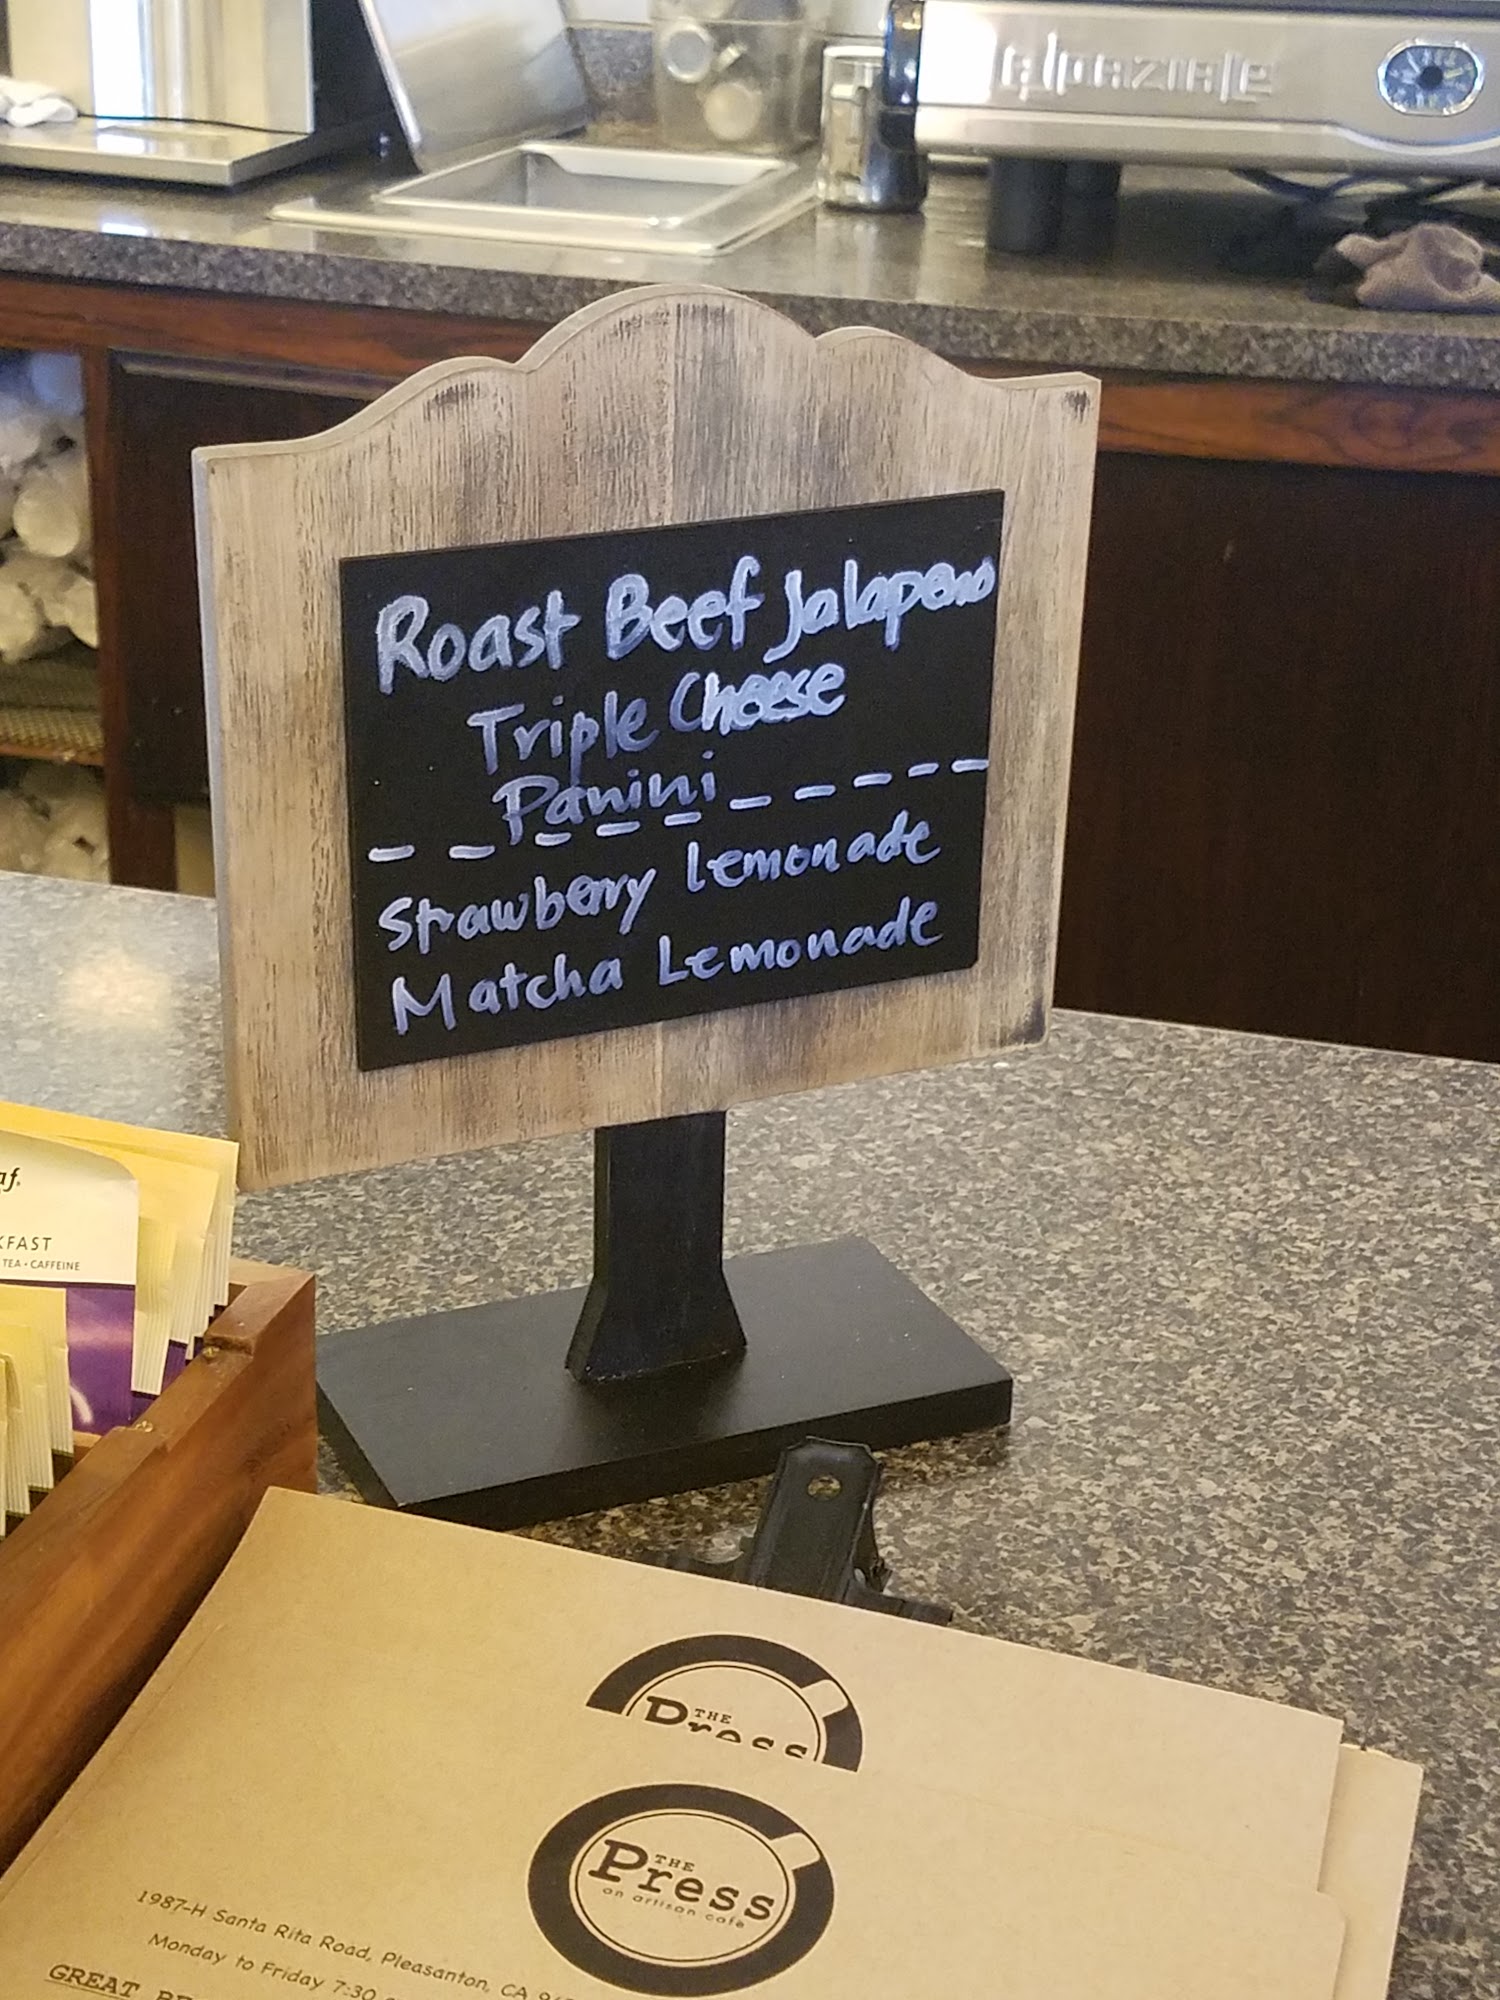 Roast Beef Jalapeno
Triple Cheese
Panini
Strawberry Lemonade
Matcha Lemonade
TEA • CAFFEINE
THE
Press
THE
Press
an artisan cafe
1987-H Santa Rita Road, Pleasanton, CA
Monday to Friday 7:30
GREAT